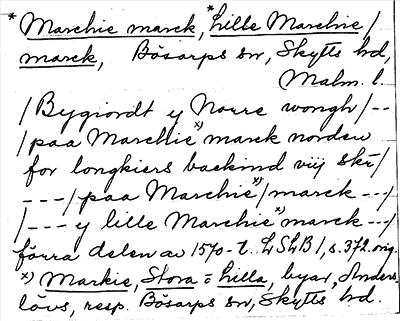 * Marchie marck, * Lille Marchie /
marck, Bösarps sn, Skytts hd,
Malm. l.
/ Bygiordt y Norre wongh / --
/ paa Marchie x) marck norden
for longkiers backind viij skr /
--- / paa Marchie x) / marck --- /
/ --- y lille Marchie x) marck --- /
förra delen av 1570-t. LSLB 1, s. 372. orig.
x) Markie, Stora o. Lilla, byar, Anders-
lövs, resp. Bösarps sn, Skytts hd.